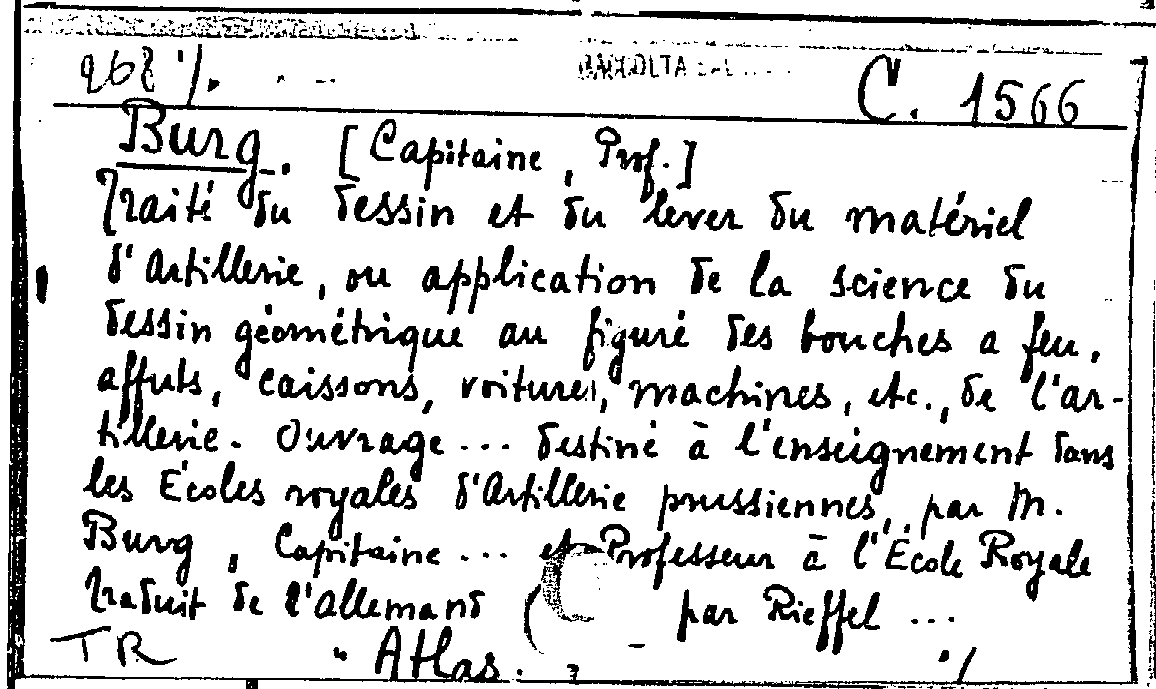 268 ·/. RACCOLTA C. 1566
Burg. [Capitaine, Prof.]
Traité du dessin et du lever du matériel
d'Artillerie, ou application de la science du
dessin géométrique au figuré des bouches a feu,
affuts, caissons, voitures, machines, etc., de l'ar-
tillerie. Ouvrage... destiné à l'enseignement dans
les Écoles royales d'Artillerie prussiennes, par M.
Burg, Capitaine... et Professeur à l'École Royale
traduit de l'allemand par Rieffel ...
TR " Atlas. ·/